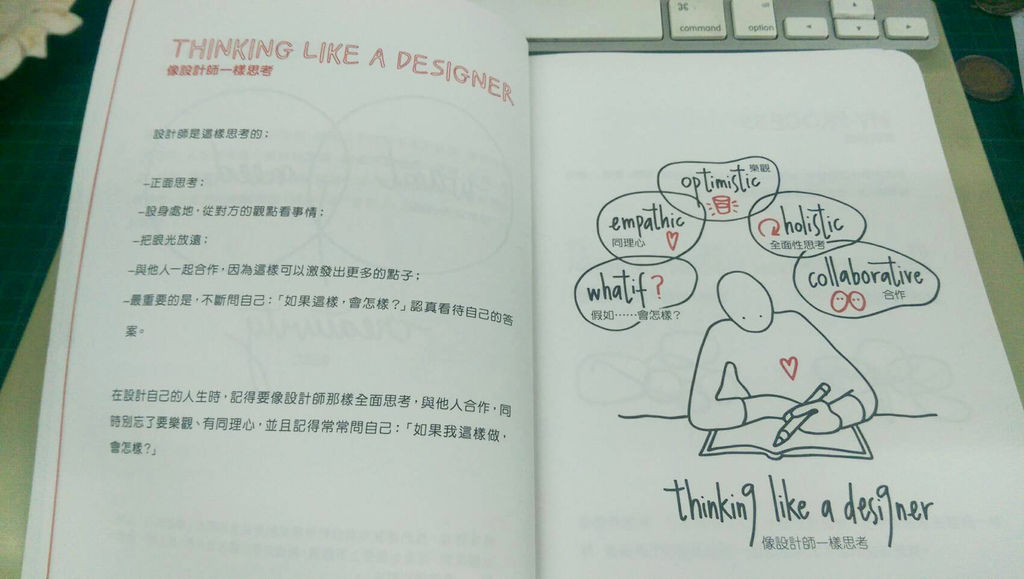 THINKING LIKE A DESIGNER
像設計師一樣思考
設計師是這樣思考的：
–正面思考；
–設身處地，從對方的觀點看事情；
–把眼光放遠；
–與他人一起合作，因為這樣可以激發出更多的點子；
–最重要的是，不斷問自己：「如果這樣，會怎樣？」認真看待自己的答
案。
在設計自己的人生時，記得要像設計師那樣全面思考，與他人合作，同
時別忘了要樂觀、有同理心，並且記得常常問自己：「如果我這樣做，
會怎樣？」
⌘
command
option
optimistic 樂觀
empathic
同理心
holistic
全面性思考
whatif?
假如……會怎樣？
collaborative
合作
thinking like a designer
像設計師一樣思考